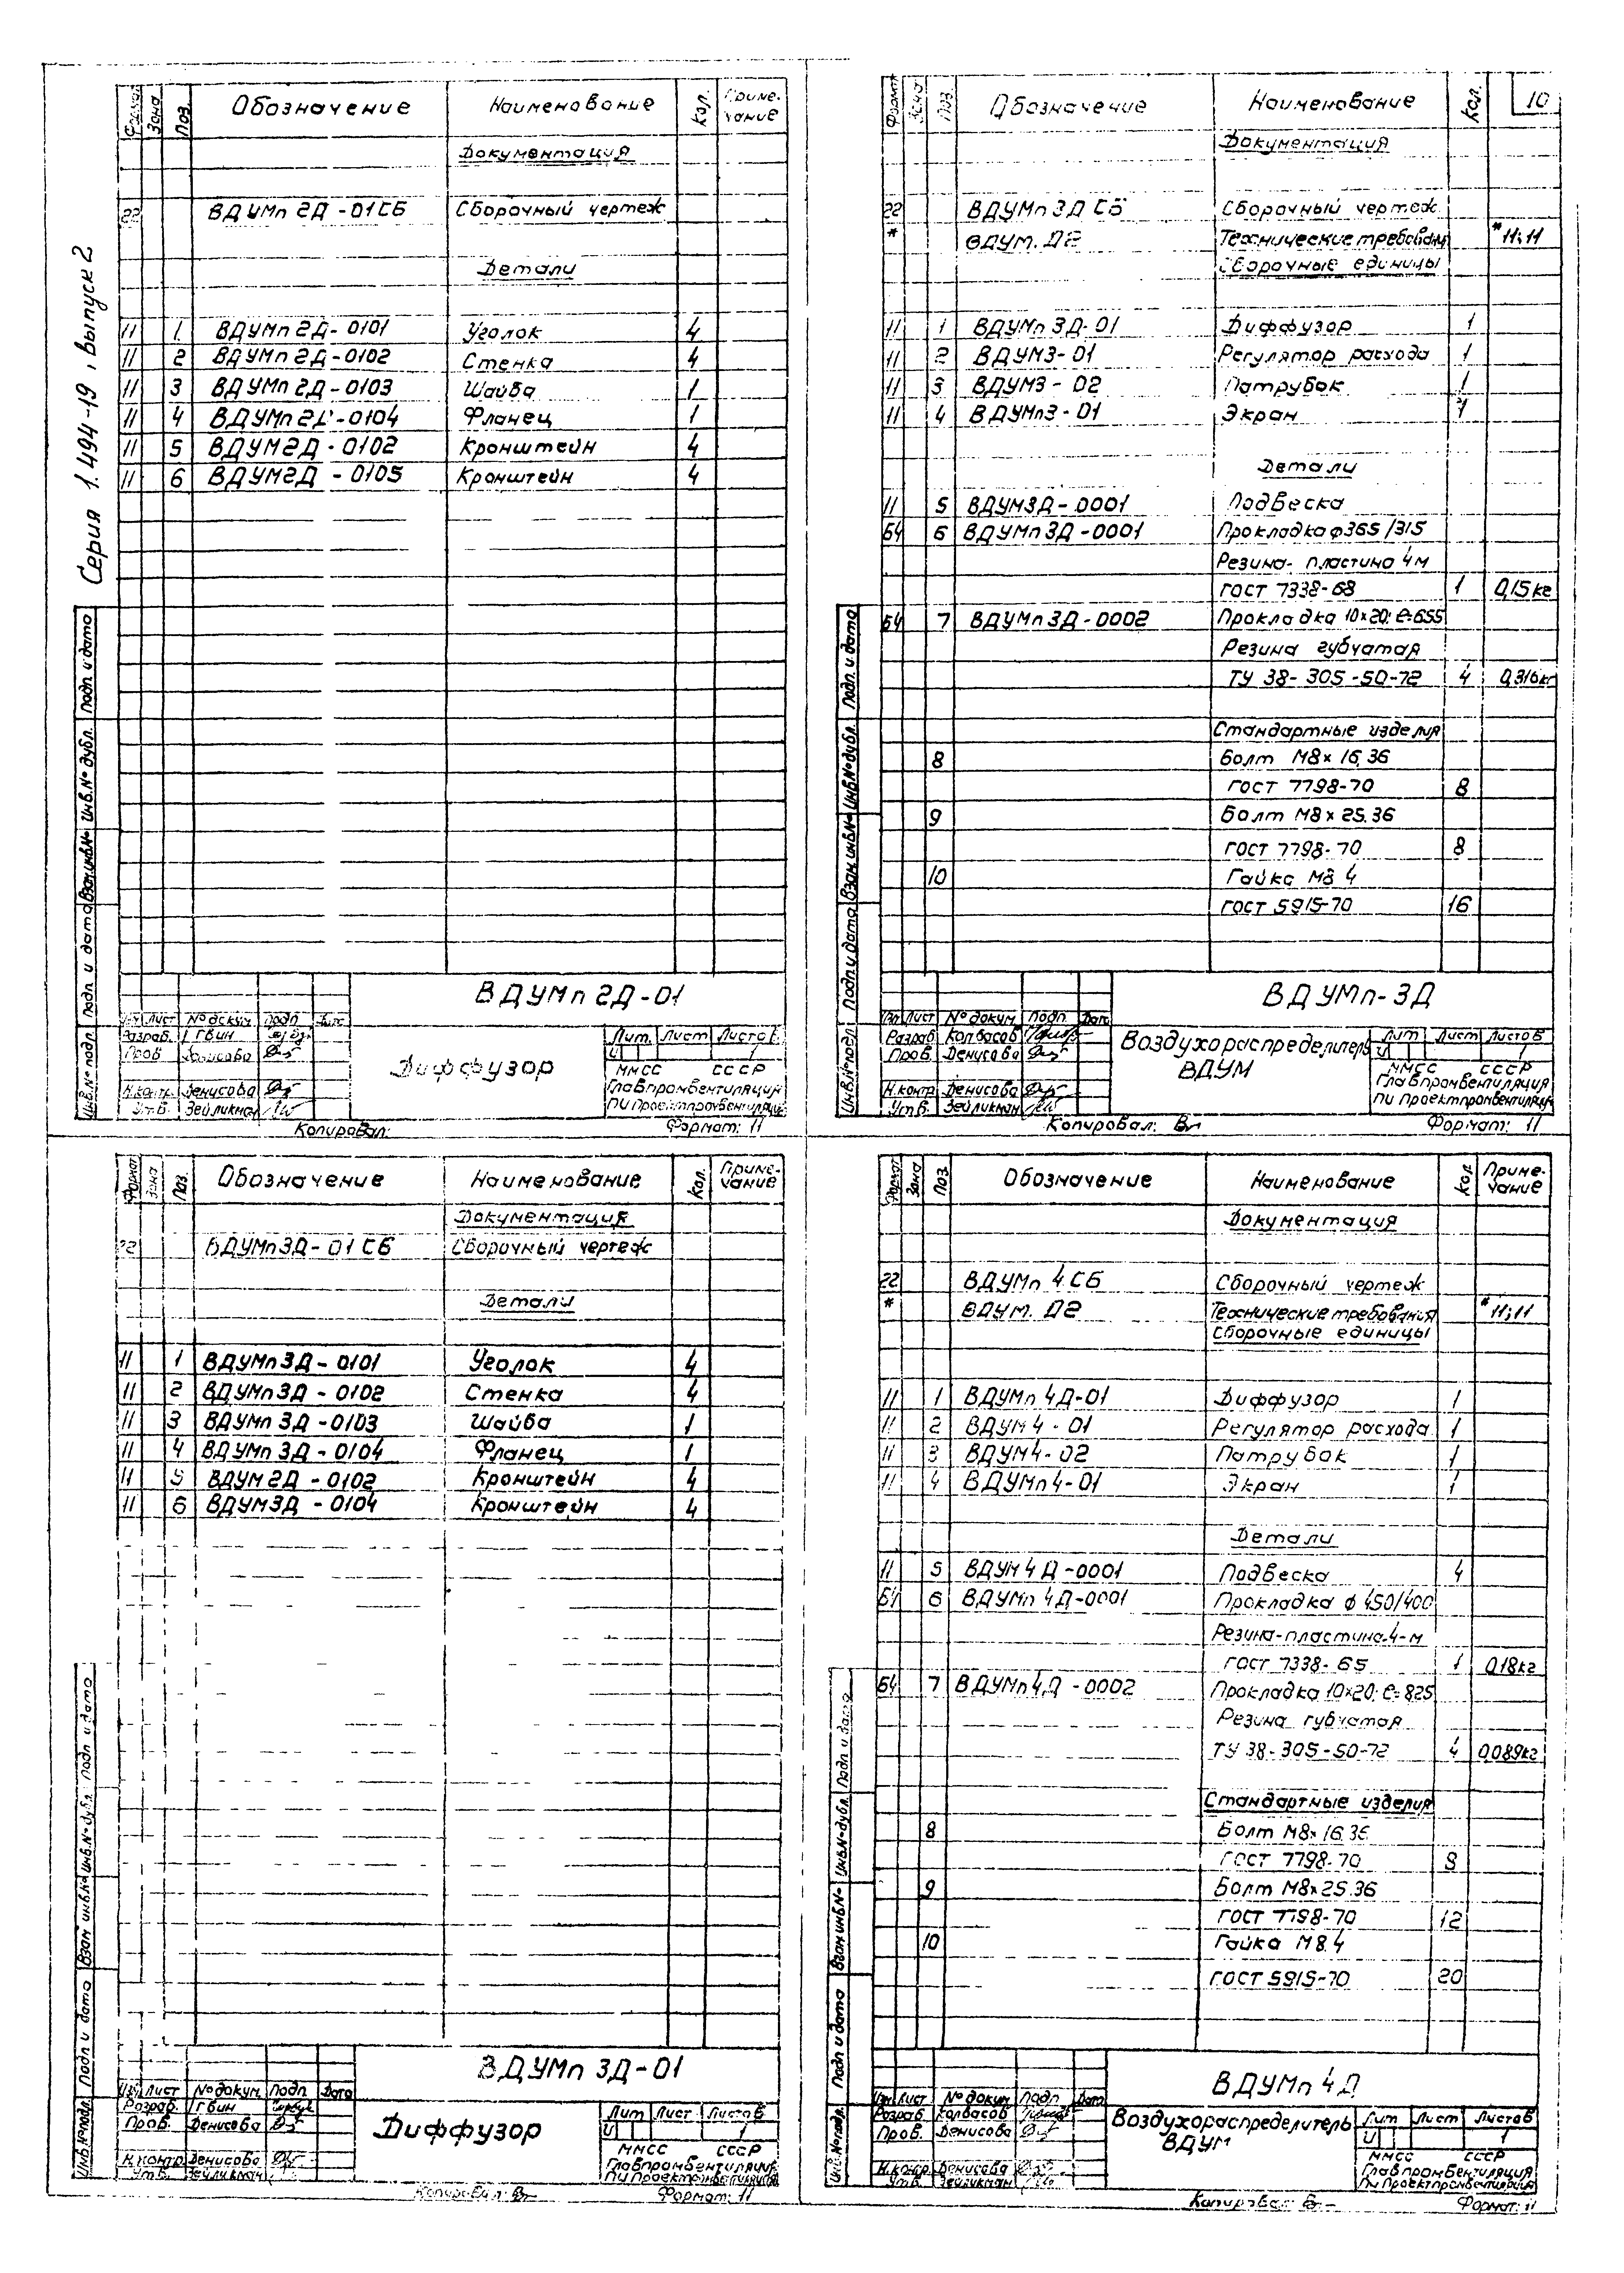 Серия 1.494-19, выпуск 2
Формат Зона Поз. Обозначение Наименование Кол. Приме-чание
Документация
22 ВДУМп 2Д-01СБ Сборочный чертеж
Детали
11 1 ВДУМп 2Д-0101 Уголок 4
11 2 ВДУМп 2Д-0102 Стенка 4
11 3 ВДУМп 2Д-0103 Шайба 1
11 4 ВДУМп 2Д-0104 Фланец 1
11 5 ВДУМ2Д-0102 Кронштейн 4
11 6 ВДУМ2Д-0105 Кронштейн 4
Инв.№ подл. Подп. и дата Взам.инв.№ Инв.№ дубл. Подп. и дата
ВДУМп 2Д-01
Изм Лист № докум Подп Дата
Разраб. Гвин
Пров Денисова
Н.контр. Денисова
Утв. Зейликман
Диффузор
Лит. Лист Листов
И 1
ММСС СССР
Главпромвентиляция
ПИ Проектпромвентиляция
Копировал: Формат: 11
10
Формат Зона Поз. Обозначение Наименование Кол.
Документация
22 ВДУМп 3Д СБ Сборочный чертеж
* ВДУМ. Д2 Технические требован *11;11
Сборочные единицы
11 1 ВДУМп 3Д-01 Диффузор 1
11 2 ВДУМ3-01 Регулятор расхода 1
11 3 ВДУМ3-02 Патрубок 1
11 4 ВДУМп3-01 Экран 1
Детали
11 5 ВДУМ3Д-0001 Подвеска
Б4 6 ВДУМп 3Д-0001 Прокладка ф365/315
Резина-пластина 4м
ГОСТ 7338-68 1 0,15кг
Б4 7 ВДУМп 3Д-0002 Прокладка 10×20; ℓ=655
Резина губчатая
ТУ 38-305-50-72 4 0,316кг
Стандартные изделия
8 Болт М8×16.36
ГОСТ 7798-70 8
9 Болт М8×25.36
ГОСТ 7798-70 8
10 Гайка М8 4
ГОСТ 5915-70 16
Инв.№ подл. Подп. и дата Взам.инв.№ Инв.№ дубл. Подп. и дата
ВДУМп-3Д
Лист № докум. Подп. Дата
Разраб Колбасов
Пров. Денисова
Н.контр. Денисова
Утв. Зейликман
Воздухораспределитель
ВДУМ
Лит Лист Листов
И 1
ММСС СССР
Главпромвентиляция
ПИ Проектпромвентиляция
Копировал: Формат: 11
Формат Зона Поз. Обозначение Наименование Кол. Приме-чание
Документация
22 ВДУМп3Д-01СБ Сборочный чертеж
Детали
11 1 ВДУМп 3Д-0101 Уголок 4
11 2 ВДУМп 3Д-0102 Стенка 4
11 3 ВДУМп 3Д-0103 Шайба 1
11 4 ВДУМп 3Д-0104 Фланец 1
11 5 ВДУМ 2Д-0102 Кронштейн 4
11 6 ВДУМ3Д-0104 Кронштейн 4
Инв.№ подл. Подп и дата Взам инв.№ Инв.№ дубл. Подп и дата
ВДУМп 3Д-01
Изм Лист № докум. Подп. Дата
Разраб. Гвин
Пров. Денисова
Н.контр. Денисова
Утв. Зейликман
Диффузор
Лит Лист Листов
И 1
ММСС СССР
Главпромвентиляция
ПИ Проектпромвентиляция
Копировал: Формат: 11
Формат Зона Поз. Обозначение Наименование Кол Приме-чание
Документация
22 ВДУМп 4СБ Сборочный чертеж
* ВДУМ. Д2 Технические требования *11;11
Сборочные единицы
11 1 ВДУМп 4Д-01 Диффузор 1
11 2 ВДУМ 4-01 Регулятор расхода 1
11 3 ВДУМ4-02 Патрубок 1
11 4 ВДУМп4-01 Экран 1
Детали
11 5 ВДУМ 4Д-0001 Подвеска 4
Б4 6 ВДУМп 4Д-0001 Прокладка ф 450/400
Резина-пластина-4-м
ГОСТ 7338-65 1 0,18кг
Б4 7 ВДУМп4Д-0002 Прокладка 10×20; ℓ=825
Резина губчатая
ТУ 38-305-50-72 4 0,089кг
Стандартные изделия
8 Болт М8×16.36
ГОСТ 7798-70 8
9 Болт М8×25.36
ГОСТ 7798-70 12
10 Гайка М8.4
ГОСТ 5915-70 20
Инв.№ подл. Подп и дата Взам инв.№ Инв.№ дубл. Подп и дата
ВДУМп 4Д
Изм Лист № докум Подп Дата
Разраб. Колбасов
Пров. Денисова
Н.контр. Денисова
Утв. Зейликман
Воздухораспределитель
ВДУМ
Лит Лист Листов
И 1
ММСС СССР
Главпромвентиляция
ПИ Проектпромвентиляция
Копировал: Формат: 11